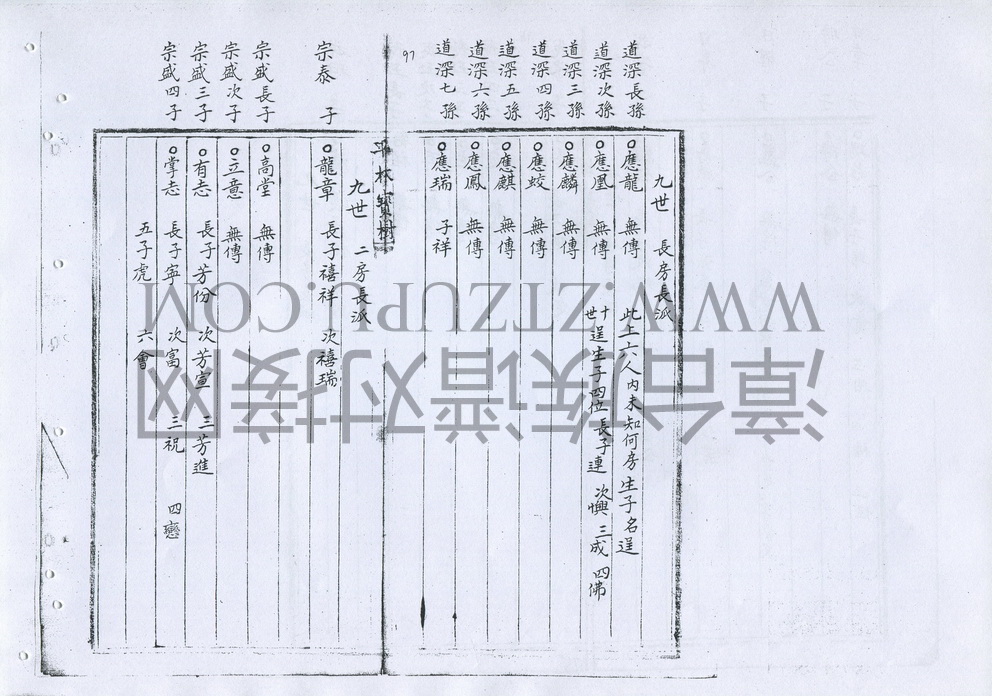 九世 長房長派
道深長孫 應龍 無傳 此上六人內未知何房生子名逞
道深次孫 應凰 無傳 十世 逞生子四位長子連 次興 三成 四佛
道深三孫 應麟 無傳
道深四孫 應蛟 無傳
道深五孫 應麒 無傳
道深六孫 應鳳 無傳
道深七孫 應瑞 子祥
97
平林寶樹
九世 二房長派
宗泰 子 龍章 長子禧祥 次禧瑞
宗盛長子 高堂 無傳
宗盛次子 立意 無傳
宗盛三子 有志 長子芳份 次芳宣 三芳進
宗盛四子 掌志 長子寧 次富 三祝 四戀
五子虎 六會
WWW.ZTZUPU.COM
漳台族谱对接网